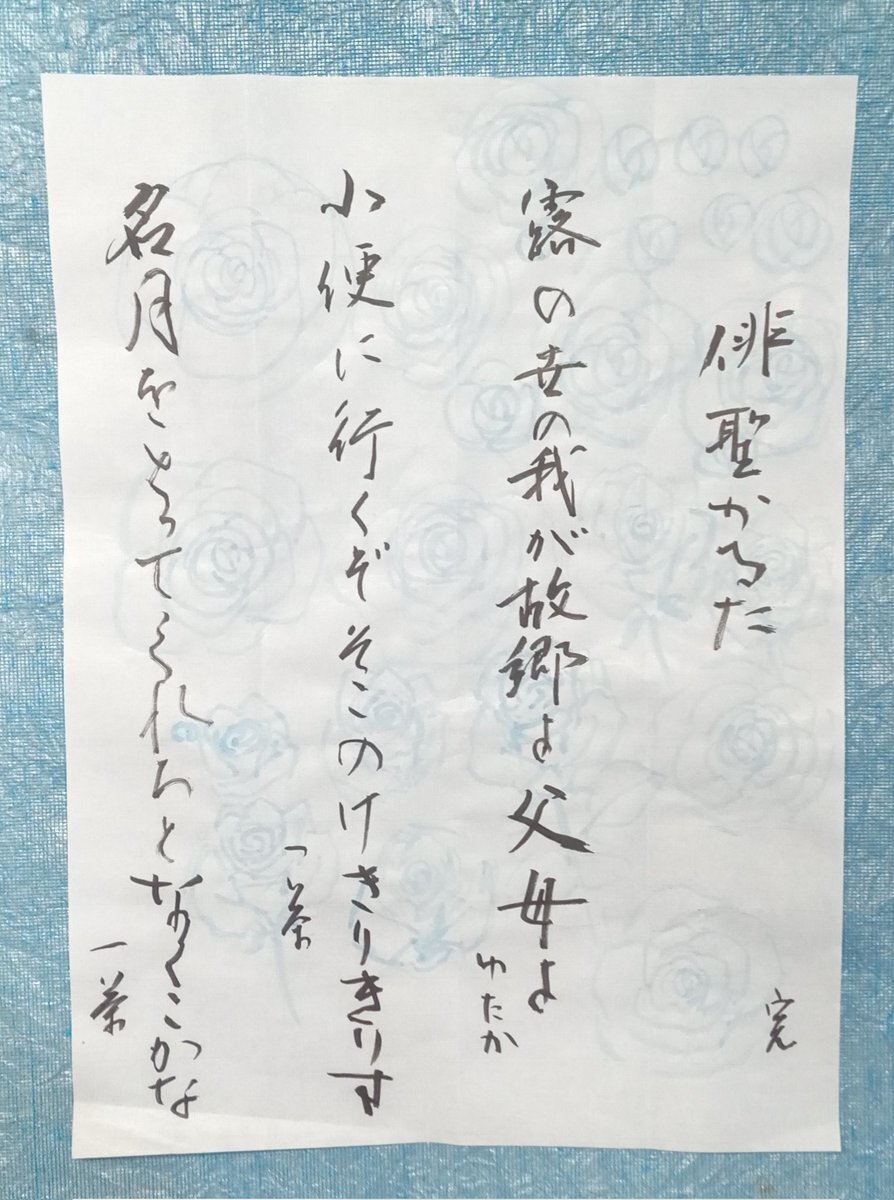 俳聖かるた
完
露の世の我が故郷よ父母よ
ゆたか
小便に行くぞそこのけきりきりす
一茶
名月をとってくれろとなくこかな
一茶